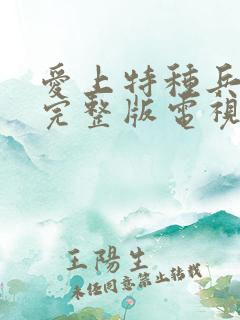 愛上特種兵
完整版電視
王陽生
未經同意禁止轉載